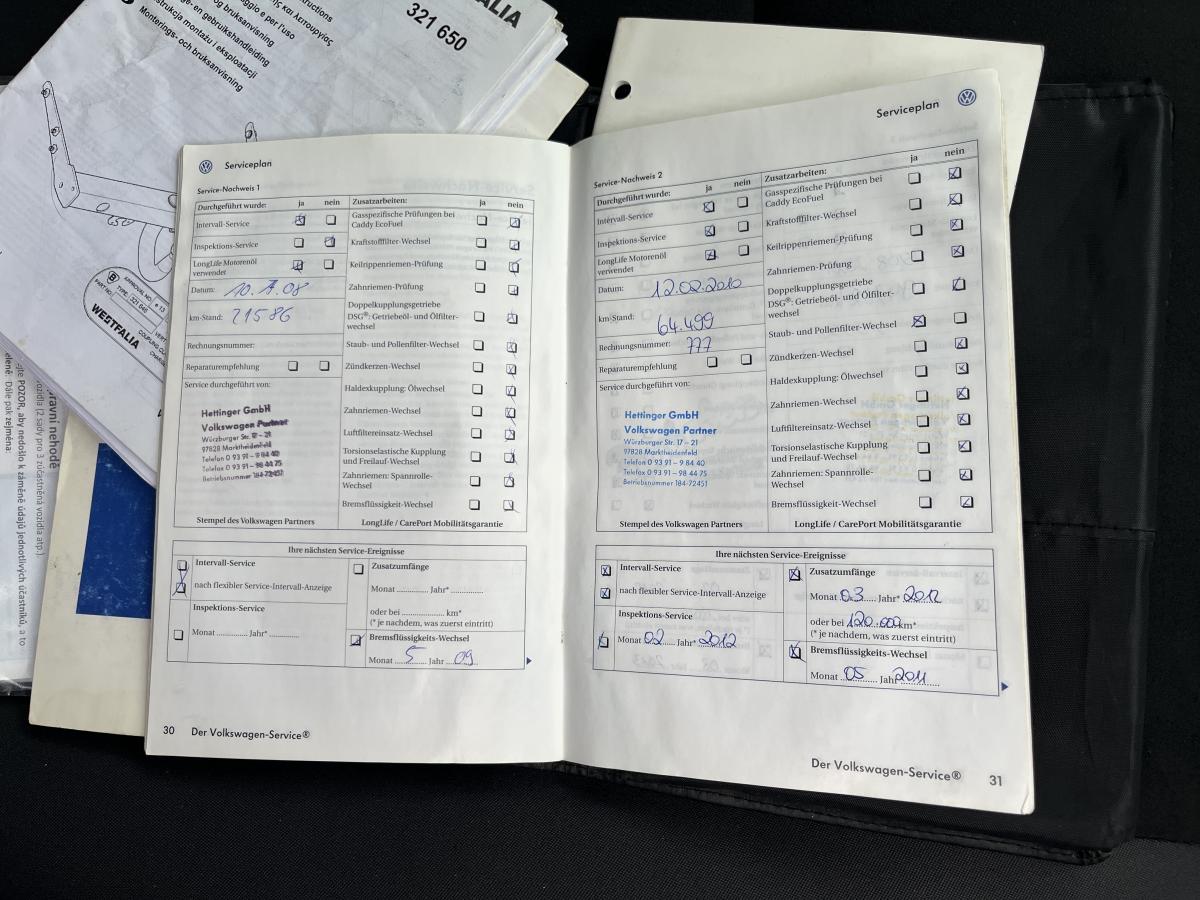 321 650
Monterings- och bruksanvisning
WESTFALIA
Serviceplan
Service-Nachweis 1
Durchgeführt wurde: ja nein
Intervall-Service
Inspektions-Service
LongLife Motorenöl
verwendet
Datum: 10.7.08
km-Stand: 21586
Rechnungsnummer:
Reparaturempfehlung
Service durchgeführt von:
Hettinger GmbH
Volkswagen Partner
Würzburger Str. 17 – 21
97828 Marktheidenfeld
Telefon 0 93 91 – 9 84 40
Telefax 0 93 91 – 98 44 75
Betriebsnummer 184-72451
Stempel des Volkswagen Partners
Zusatzarbeiten: ja nein
Gasspezifische Prüfungen bei
Caddy EcoFuel
Kraftstofffilter-Wechsel
Keilrippenriemen-Prüfung
Zahnriemen-Prüfung
Doppelkupplungsgetriebe
DSG®: Getriebeöl- und Ölfilter-
wechsel
Staub- und Pollenfilter-Wechsel
Zündkerzen-Wechsel
Haldexkupplung: Ölwechsel
Zahnriemen-Wechsel
Luftfiltereinsatz-Wechsel
Torsionselastische Kupplung
und Freilauf-Wechsel
Zahnriemen: Spannrolle-
Wechsel
Bremsflüssigkeit-Wechsel
LongLife / CarePort Mobilitätsgarantie
Ihre nächsten Service-Ereignisse
Intervall-Service
nach flexibler Service-Intervall-Anzeige
Inspektions-Service
Monat ............ Jahr* ............
Zusatzumfänge
Monat ............ Jahr* ............
oder bei ................ km*
(* je nachdem, was zuerst eintritt)
Bremsflüssigkeits-Wechsel
Monat 5 Jahr 09
30 Der Volkswagen-Service®
Serviceplan
Service-Nachweis 2
Durchgeführt wurde: ja nein
Intervall-Service
Inspektions-Service
LongLife Motorenöl
verwendet
Datum: 12.02.2010
km-Stand: 64.499
Rechnungsnummer: 777
Reparaturempfehlung
Service durchgeführt von:
Hettinger GmbH
Volkswagen Partner
Würzburger Str. 17 – 21
97828 Marktheidenfeld
Telefon 0 93 91 – 9 84 40
Telefax 0 93 91 – 98 44 75
Betriebsnummer 184-72451
Stempel des Volkswagen Partners
Zusatzarbeiten: ja nein
Gasspezifische Prüfungen bei
Caddy EcoFuel
Kraftstofffilter-Wechsel
Keilrippenriemen-Prüfung
Zahnriemen-Prüfung
Doppelkupplungsgetriebe
DSG®: Getriebeöl- und Ölfilter-
wechsel
Staub- und Pollenfilter-Wechsel
Zündkerzen-Wechsel
Haldexkupplung: Ölwechsel
Zahnriemen-Wechsel
Luftfiltereinsatz-Wechsel
Torsionselastische Kupplung
und Freilauf-Wechsel
Zahnriemen: Spannrolle-
Wechsel
Bremsflüssigkeit-Wechsel
LongLife / CarePort Mobilitätsgarantie
Ihre nächsten Service-Ereignisse
Intervall-Service
nach flexibler Service-Intervall-Anzeige
Inspektions-Service
Monat 02 Jahr* 2012
Zusatzumfänge
Monat 03 Jahr* 2012
oder bei 120.000 km*
(* je nachdem, was zuerst eintritt)
Bremsflüssigkeits-Wechsel
Monat 05 Jahr 2011
Der Volkswagen-Service® 31